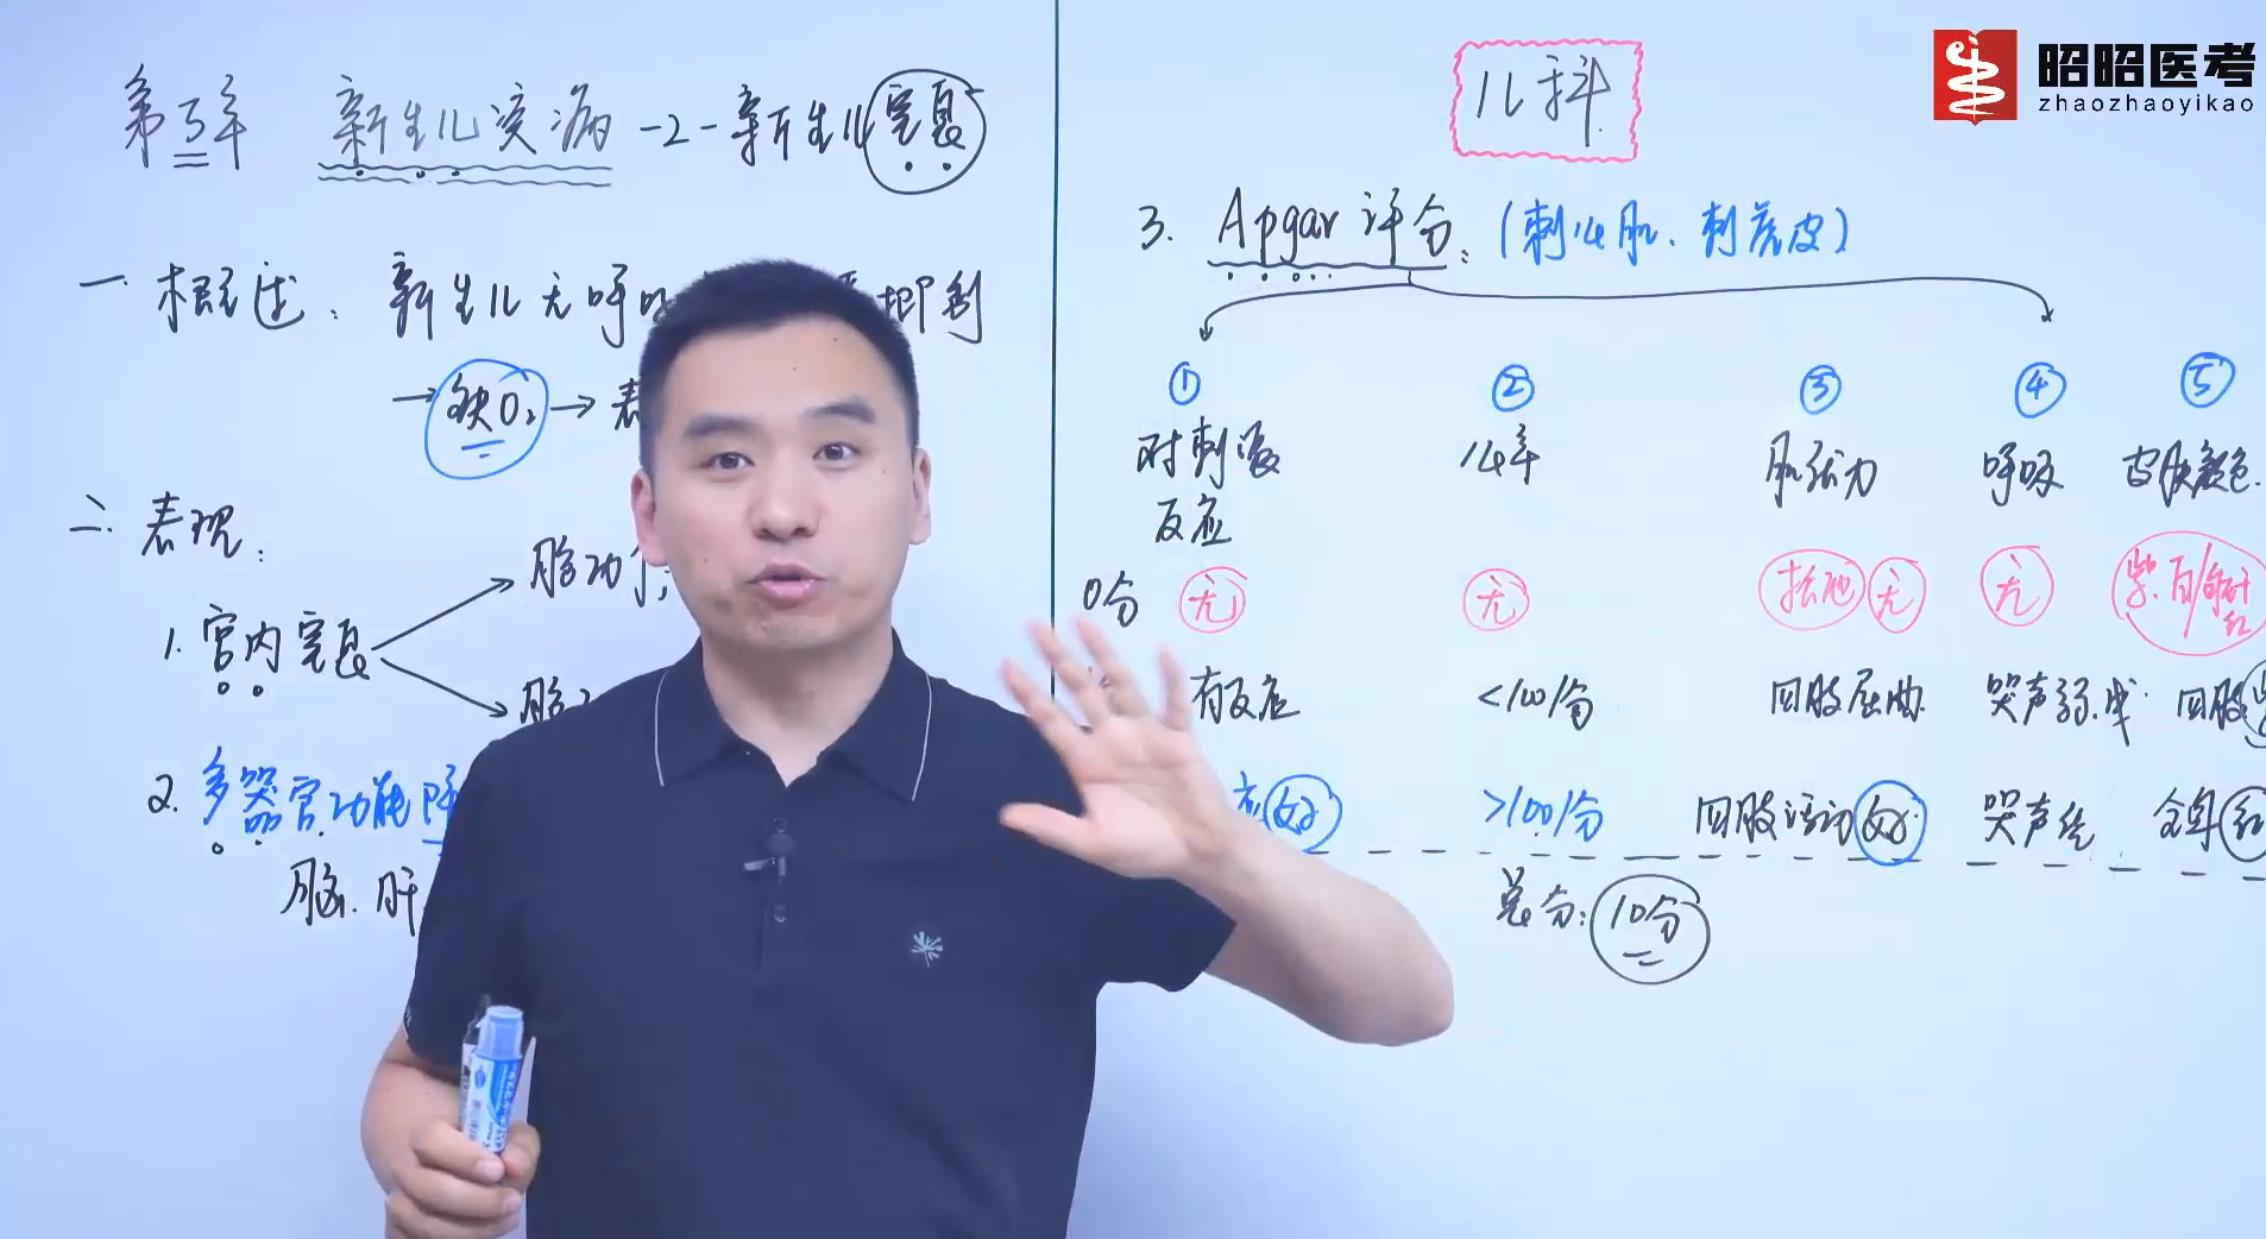 第5章 新生儿疾病-2-新生儿窒息
一 概述：新生儿无呼 抑制
→缺O₂→表
二. 表现：
1.宫内窒息
胎动
胎
2.多器官功能障
脑.肝
儿科
昭昭医考
zhaozhaoyikao
3. Apgar评分：(刺心肌、刺虎皮)
① ② ③ ④ ⑤
对刺激反应 心率 肌张力 呼吸 皮肤颜色.
0分 无 无 松弛 无 无 紫.白/
有反应 <100/分 四肢屈曲 哭声弱. 四肢
应好 >100/分 四肢活动好 哭声 全身红
总分：10分